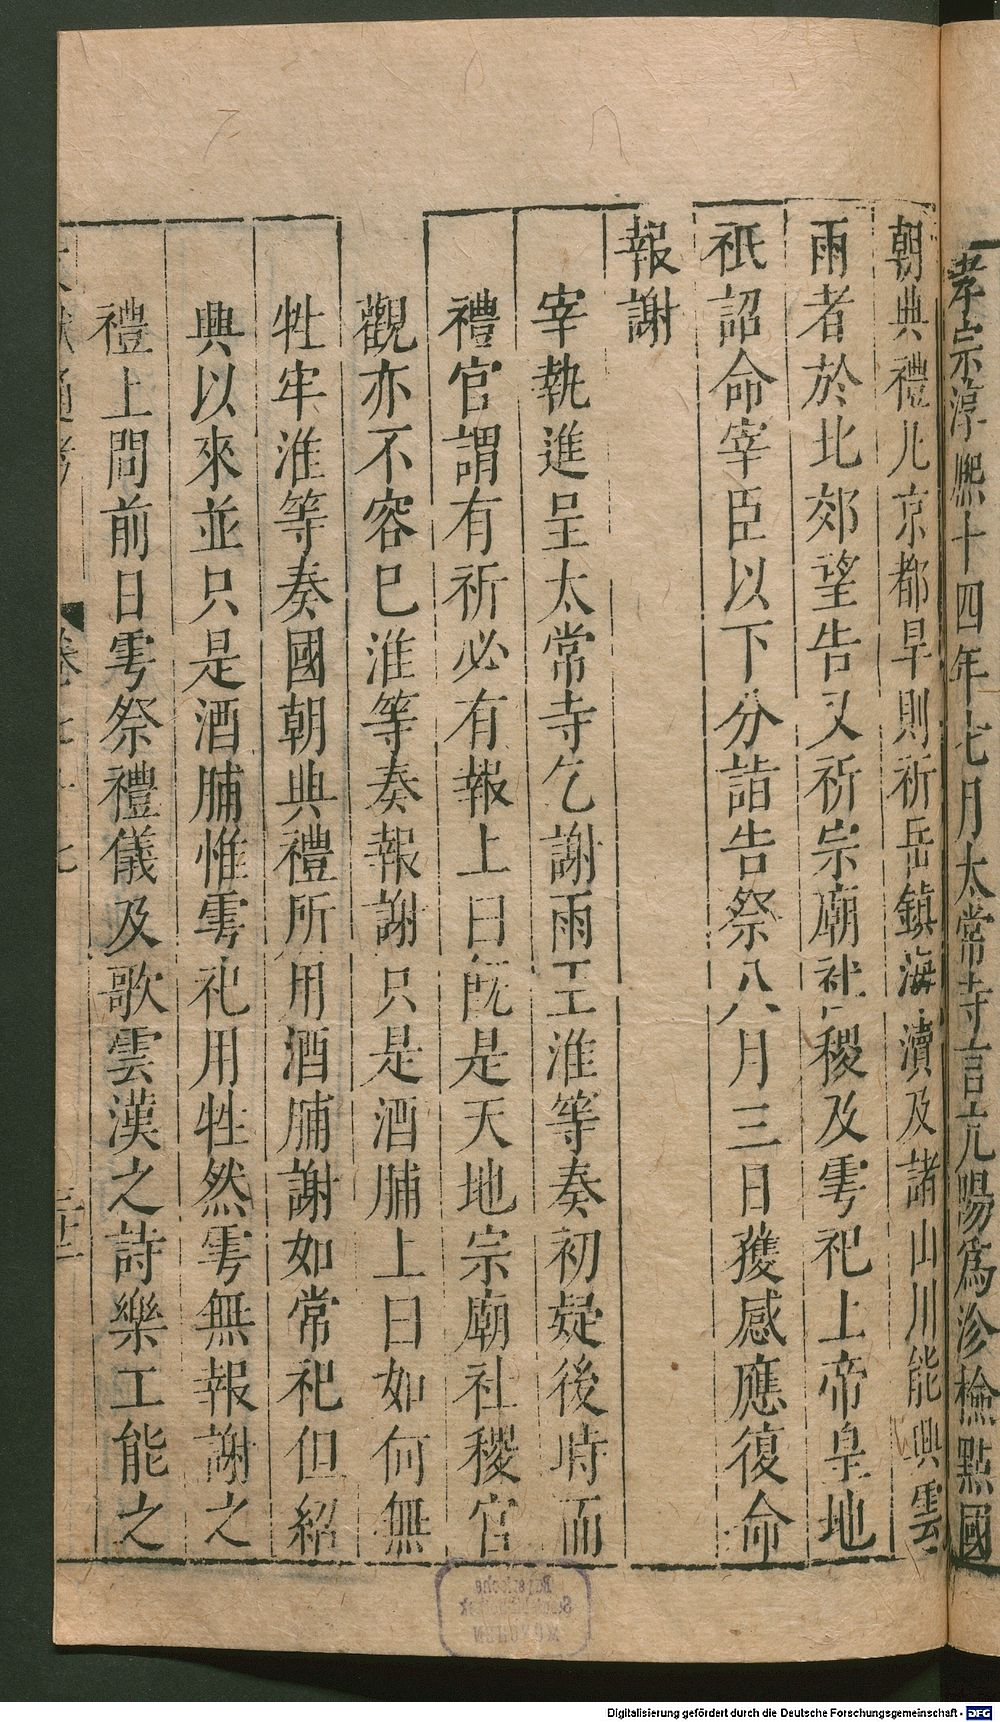 孝宗淳熙十四年七月太常寺言亢陽為沴檢點國
朝典禮凡京都旱則祈岳鎮海瀆及諸山川能興雲
雨者於北郊望告又祈宗廟社稷及雩祀上帝皇地
祇詔命宰臣以下分詣告祭八月三日獲感應復命
報謝
宰執進呈太常寺乞謝雨王淮等奏初疑後時而
禮官謂有祈必有報上曰既是天地宗廟社稷宮
觀亦不容已淮等奏報謝只是酒脯上曰如何無
牲牢淮等奏國朝典禮所用酒脯謝如常祀但紹
興以來並只是酒脯惟雩祀用牲然雩無報謝之
禮上問前日雩祭禮儀及歌雲漢之詩樂工能之
Digitalisierung gefördert durch die Deutsche Forschungsgemeinschaft - DFG